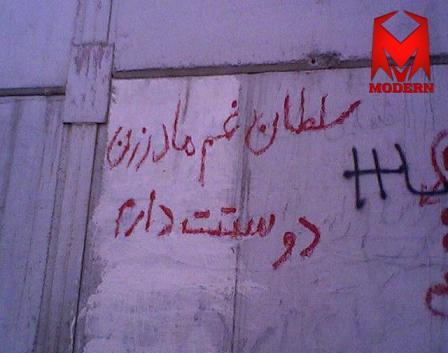 سلطان غم مادرزن
دوستت دارم
MODERN